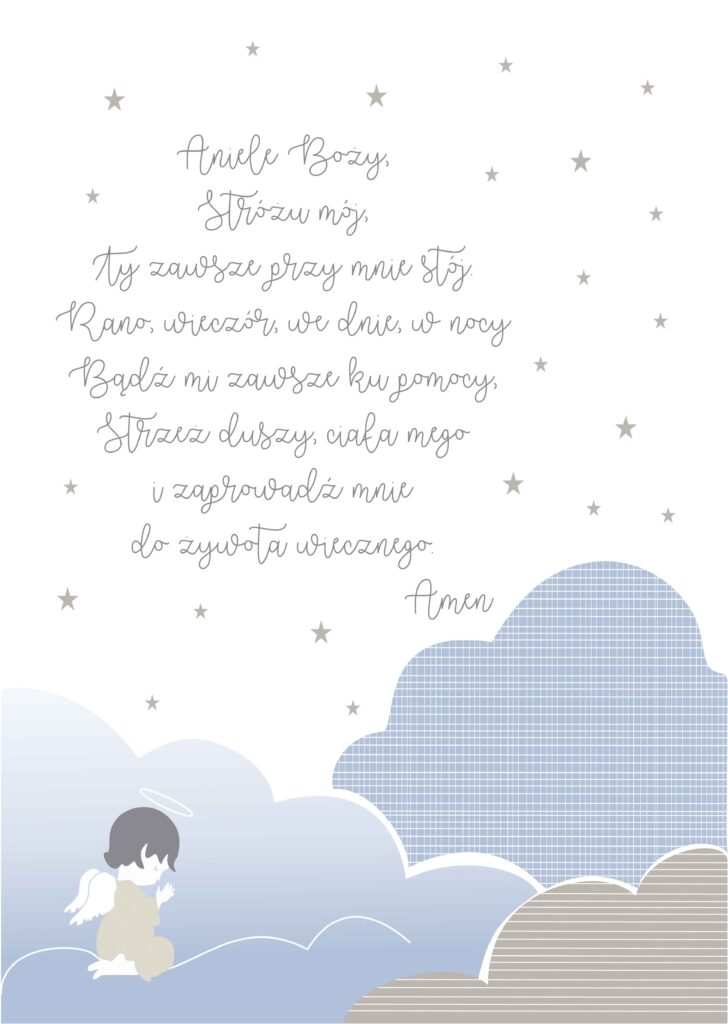 Aniele Boży,
Stróżu mój,
Ty zawsze przy mnie stój.
Rano, wieczór, we dnie, w nocy
Bądź mi zawsze ku pomocy,
Strzeż duszy, ciała mego
i zaprowadź mnie
do żywota wiecznego.
Amen